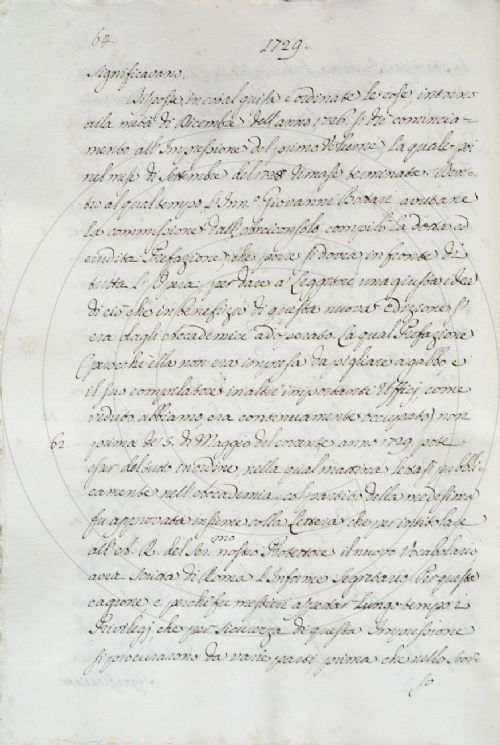 64.
1729.
significavano.
Disposte in cotal guisa e ordinate le cose, intorno
alla metà di Dicembre dell'anno 1726 si diè comincia-
mento all'Impressione del primo Volume, la quale poi
nel mese di Settembre del 1728 rimase terminata. Den-
tro al qual tempo l'Inn.o Giovanni Bottari avutane
la commessione dall'Arciconsolo compilò la dotta ed
erudita Prefazione, che porre si dovea in fronte di
tutta l'Opera per dare a Leggitori una giusta idea
di ciò che in benefizio di questa nuova Edizione s'
era dagli Accademici adoperato. La qual Prefazione
(perocchè ella non era impresa da pigliare a gabbo e
il suo compilatore in altri importanti Uffizj, come
veduto abbiamo, era continuamente occupato) non
62. prima de' 5. di Maggio del corrente anno 1729 potè
esser del tutto in ordine, nella qual mattina lettasi pubbli-
camente nell'Accademia col parere della medesima
fu approvata insieme colla Lettera che per intitolare
all'A. R. del Ser.mo nostro Protettore il nuovo Vocabolario
avea scritta di Roma l'Infarme Segretario. Per questa
cagione, e perchè fu mestiere aspettar lungo tempo i
Privilegj che per sicurezza di questa Impressione
si procurarono da varie parti prima che nello scor-
so